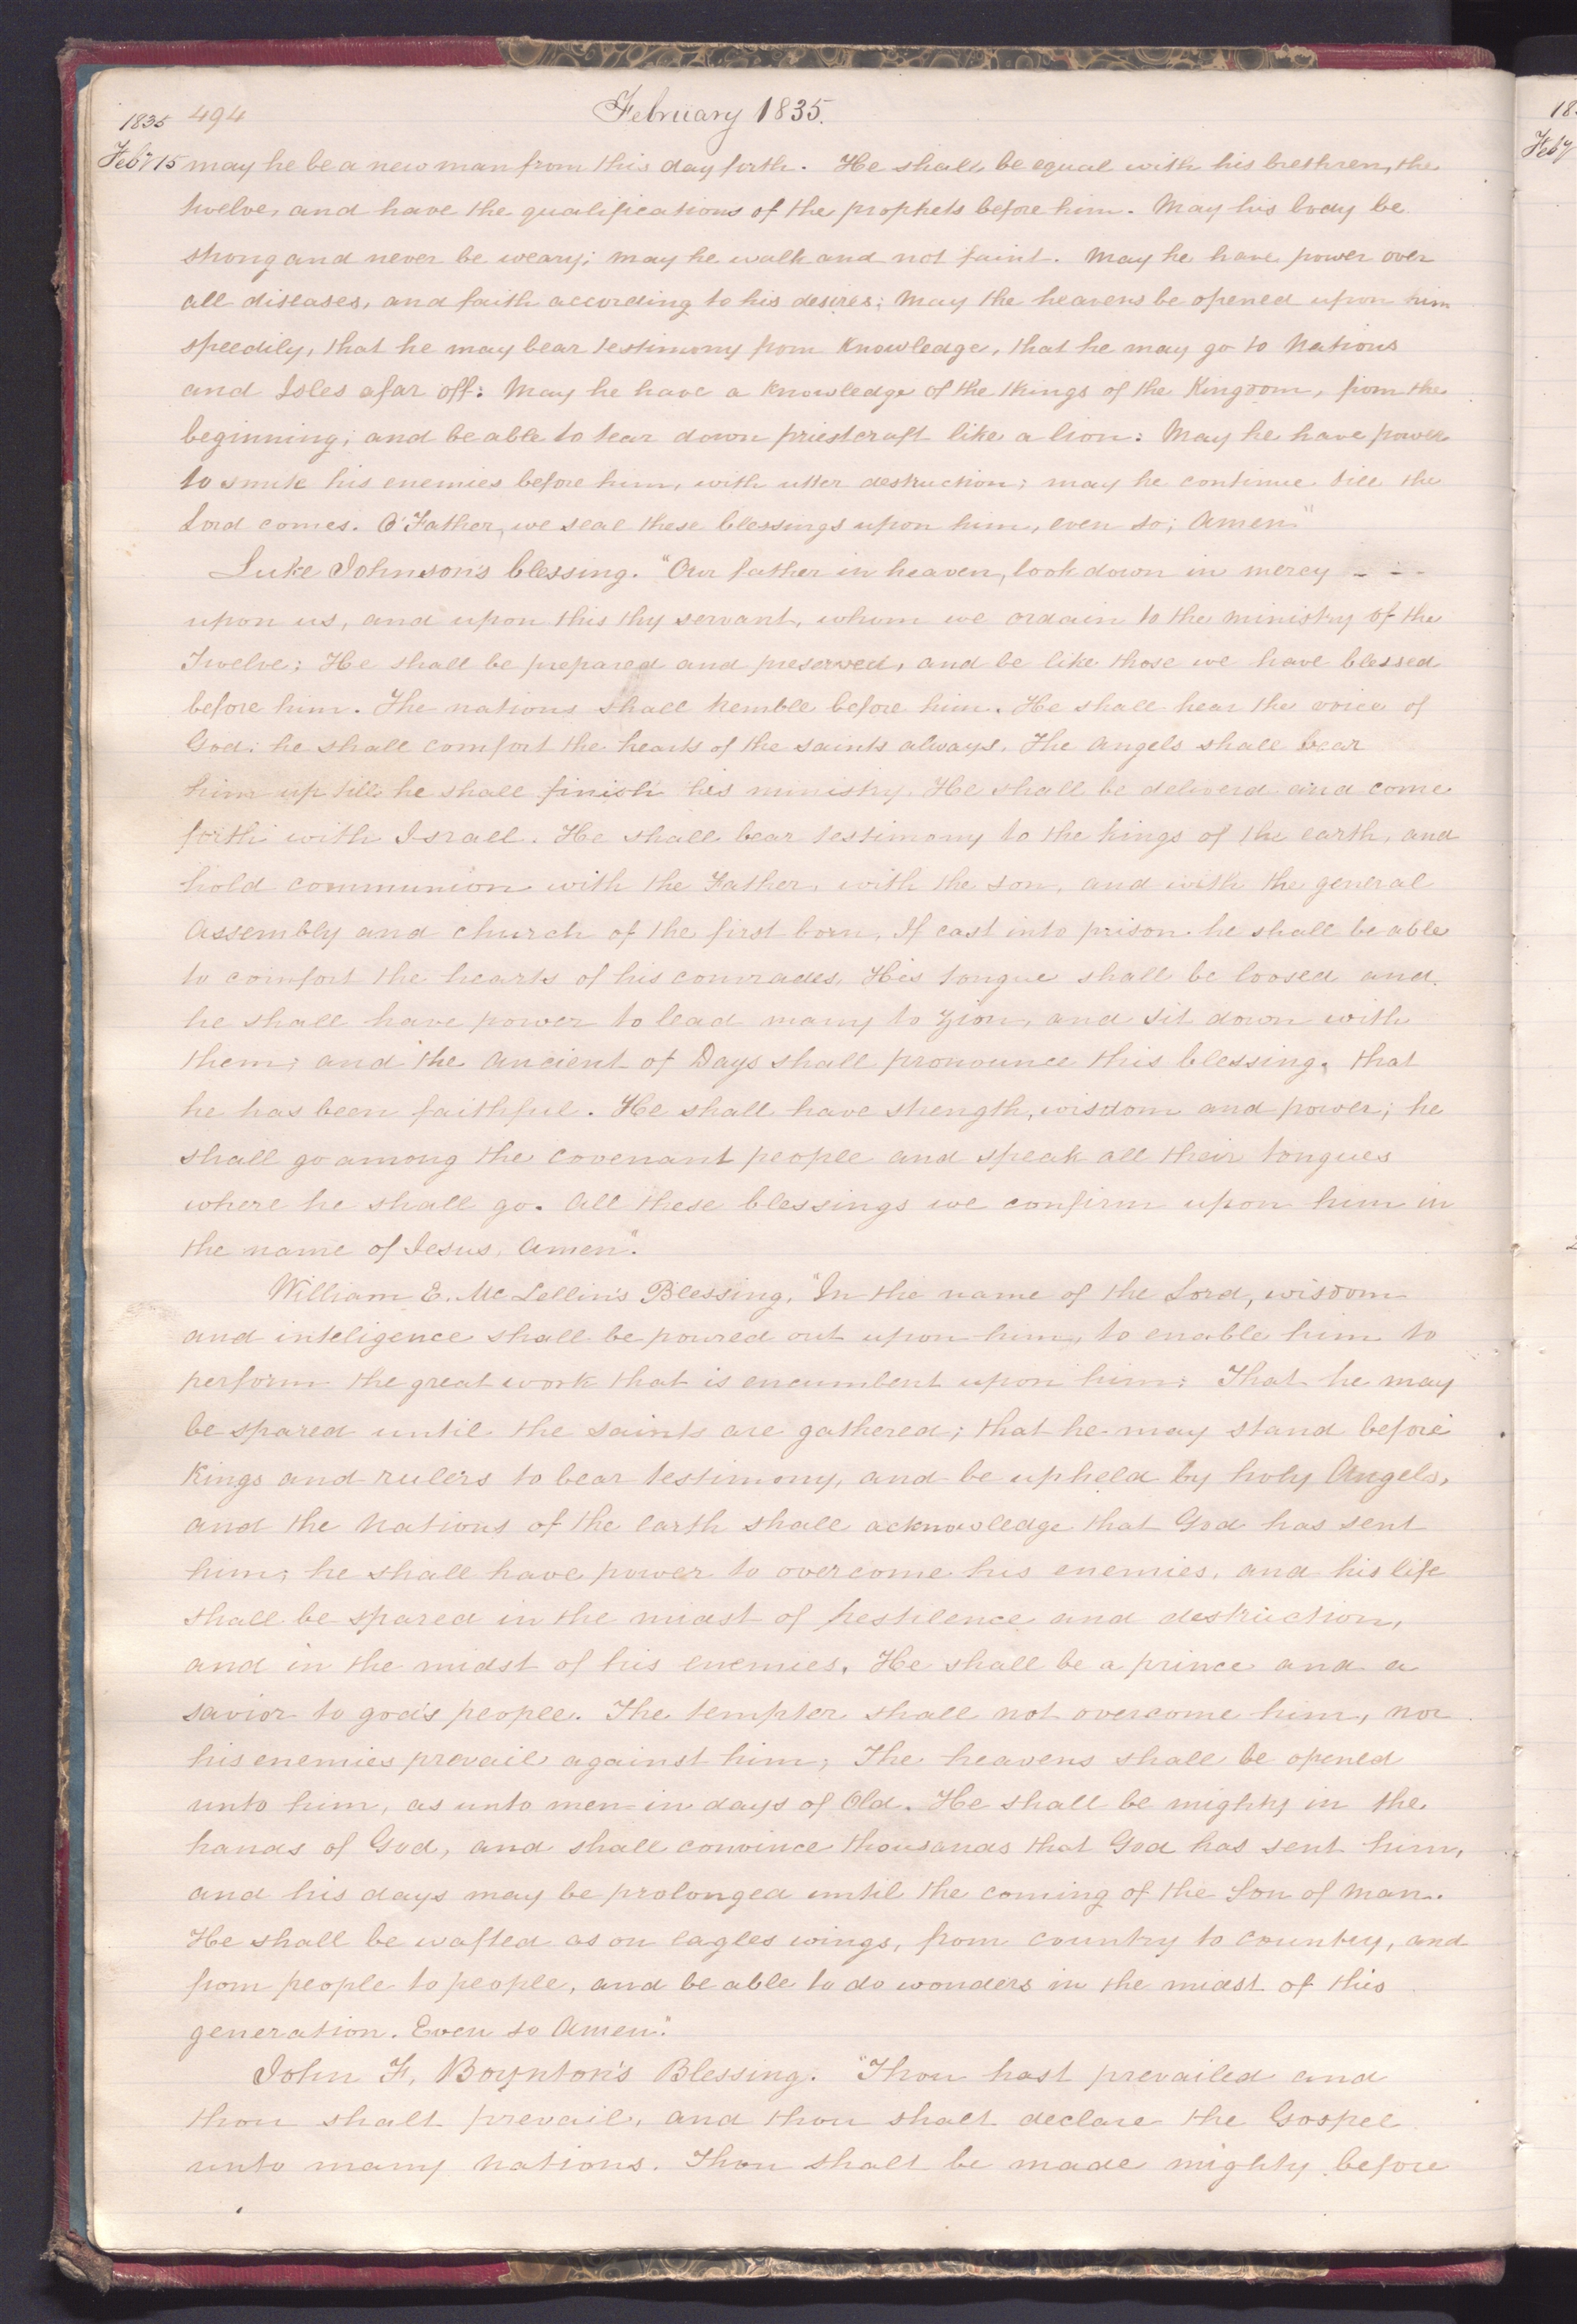 1835 494 February 1835.
Feby 15 may he be a new man from this day forth. He shall be equal with his brethren, the
twelve, and have the qualifications of the prophets before him. May his body be
strong and never be weary; may he walk and not faint. May he have power over
all diseases, and faith according to his desires; May the heavens be opened upon him
speedily, that he may bear testimony from Knowledge, that he may go to Nations
and Isles afar off: May he have a Knowledge of the things of the Kingdom, from the
beginning; and be able to tear down priestcraft like a lion: May he have power
to smite his enemies before him, with utter destruction; may he continue till the
Lord comes. O Father, we seal these blessings upon him, even so; Amen"
Luke Johnson's blessing. "Our father in heaven, look down in mercy - - -
upon us, and upon this thy servant, whom we ordain to the ministry of the
Twelve; He shall be prepared and preserved, and be like those we have blessed
before him. The nations shall tremble before him. He shall hear the voice of
God; he shall comfort the hearts of the saints always. The Angels shall bear
him up till he shall finish his ministry. He shall be deliverd and come
forth with Israel. He shall bear testimony to the kings of the earth, and
hold communion with the Father, with the son, and with the general
Assembly and church of the first born. If cast into prison he shall be able
to comfort the hearts of his comrades, His tongue shall be loosed and
he shall have power to lead many to Zion, and sit down with
them; and the Ancient of Days shall pronounce this blessing, that
he has been faithful. He shall have strength, wisdom and power; he
shall go among the covenant people and speak all their tongues
where he shall go. All these blessings we confirm upon him in
the name of Jesus, Amen".
William E. Mc Lellin's Blessing, "In the name of the Lord, wisdom
and inteligence shall be poured out upon him, to enable him to
perform the great work that is encumbent upon him: That he may
be spared until the saints are gathered; that he may stand before
Kings and rulers to bear testimony, and be upheld by holy Angels,
and the Nations of the earth shall acknowledge that God has sent
him; he shall have power to overcome his enemies, and his life
shall be spared in the midst of pestilence and destruction,
and in the midst of his enemies. He shall be a prince and a
savior to god's people. The tempter shall not overcome him, nor
his enemies prevail against him; The heavens shall be opened
unto him, as unto men in days of Old. He shall be mighty in the
hands of God, and shall convince thousands that God has sent him,
and his days may be prolonged until the coming of the Son of Man.
He shall be wafted as on eagles wings, from country to country, and
from people to people, and be able to do wonders in the midst of this
generation. Even so Amen".
John F. Boynton's Blessing. "Thou hast prevailed and
thou shalt prevail, and thou shalt declare the Gospel
unto many Nations. Thou shalt be made mighty before
18
Feby